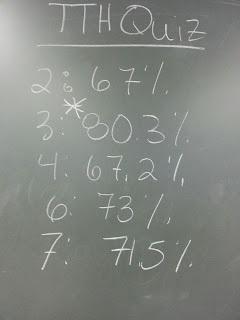 TTH Quiz
2: 67%
3: *80.3%
4: 67.2%
6: 73%
7: 71.5%